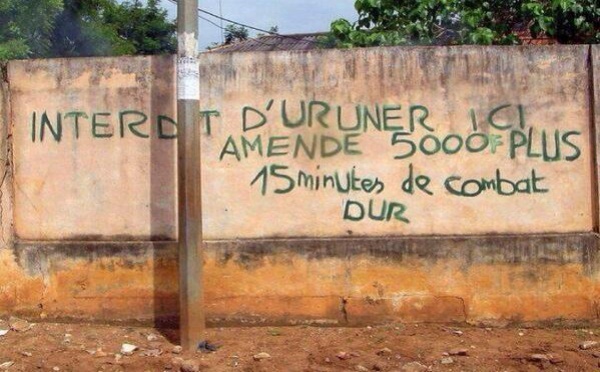 INTERDIT D'URUNER ICI
AMENDE 5000F PLUS
15minutes de combat
DUR